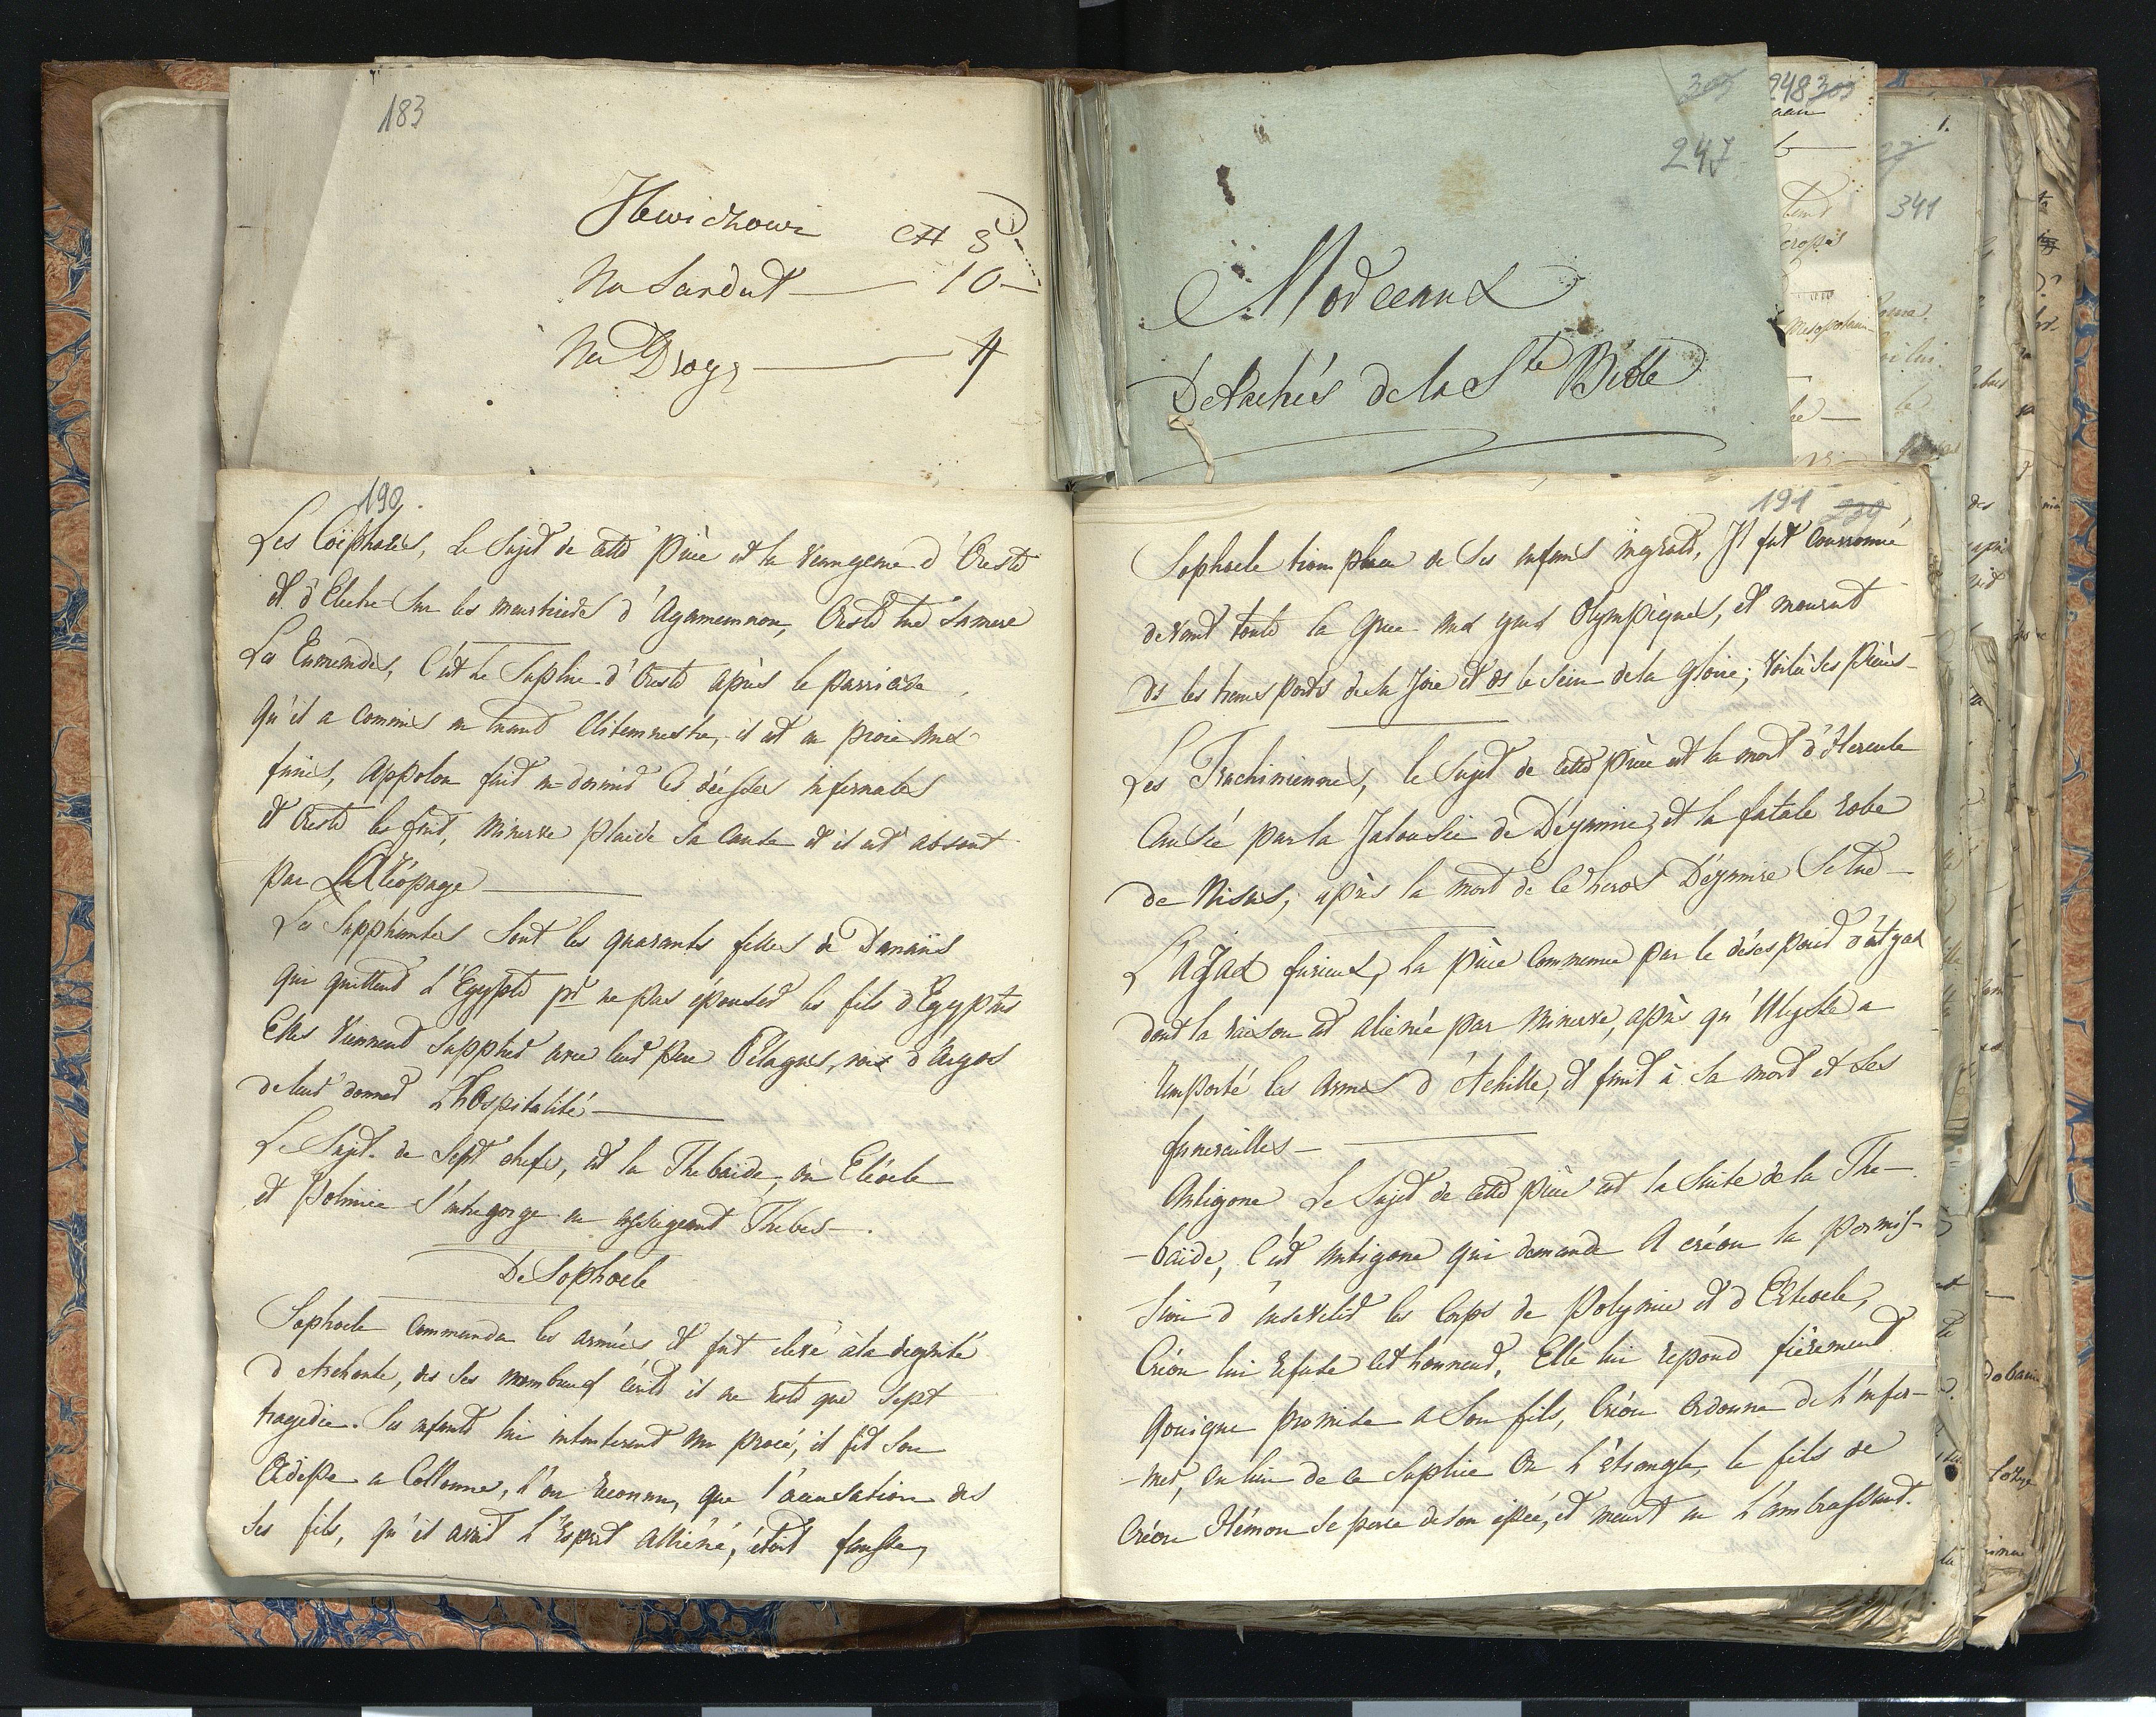 183
Ilewiczowi # 8
Na Sandał — 10 —
Na Drogę — 4
305
247
Morceaux
Détachés de la Ste Bible
248 305
341
190
Les Coëphores, le Sujet de cette pièce est la veangence d'Oreste
et d'Electre Sur les meurtriers d'Agamemnon, Oreste tue Sa mere
Les Eumenides, c'est le Suplice d'Oreste après le parricide
qu'il a commis en tuant Clitemnestre, il est en proie aux
furies, Appolon fait en dormir les déesses infernales
et Oreste les fuit, Minerve plaide Sa cause et il est absout
par L'Aréopage —
Les Suppliantes Sont les quarantes filles de Danaüs
qui quittent l'Egypte pr ne pas épouser les fils d'Egyptus
Elles viennent Supplier avec leur pere Pélagus, roi d'Argos
de leur donner L'hospitalité —
Le Sujet de Sept chefs, est la Thebaide, où Etéocle
et Polinice S'entregorge en assiegeant Thebes —
De Sophocle
Sophocle commanda les armées et fut elevé à la degnité
d'Archonte, des Ses nombreux écrits il ne reste que Sept
tragedie. Ses enfants lui intenterent un procé, il fit Son
Œdipe a Collonne, l'on reconnu, que l'acusation des
Ses fils, qu'il avait l'Esprit alliéné, étoit fausse,
191 239
Sophocle triompha de Ses enfans ingrats, Il fut Couronné
devant toute la Grece aux jeux Olympiques, et mourut
ds les transports de la Joie et ds le Sein de la gloire; Voilà Ses Pièces —
Les Trachiniennes, le Sujet de cette pièce est la mort d'Hercule
Causée par la Jalousie de Déyanire, et la fatale robe
de Nisus, après la mort de ce heros Déyanire Se tue —
L'Ajax furieux, la pièce Commence par le désespoir d'Ajax
dont la raison est alienée par Minerve, après qu'Ulysse a
remporté les armes d'Achille, et finit à Sa mort et Ses
funerailles —
Antigone Le Sujet de cette pièce est la Suite de la The-
-baïde, c'est Antigone qui demande A créon la permis-
Sion d'ensevelir les Corps de Polynice et d'Eteocle,
Créon lui refuse cet honneur, Elle lui repond fièrement
Qouique promise a Son fils, Créon Ordonne de l'enfer-
-mer, au lieu de ce Suplice On l'étrangle, le fils de
Créon Hémon Se perce de Son épée, et meurt en l'ambrassant.